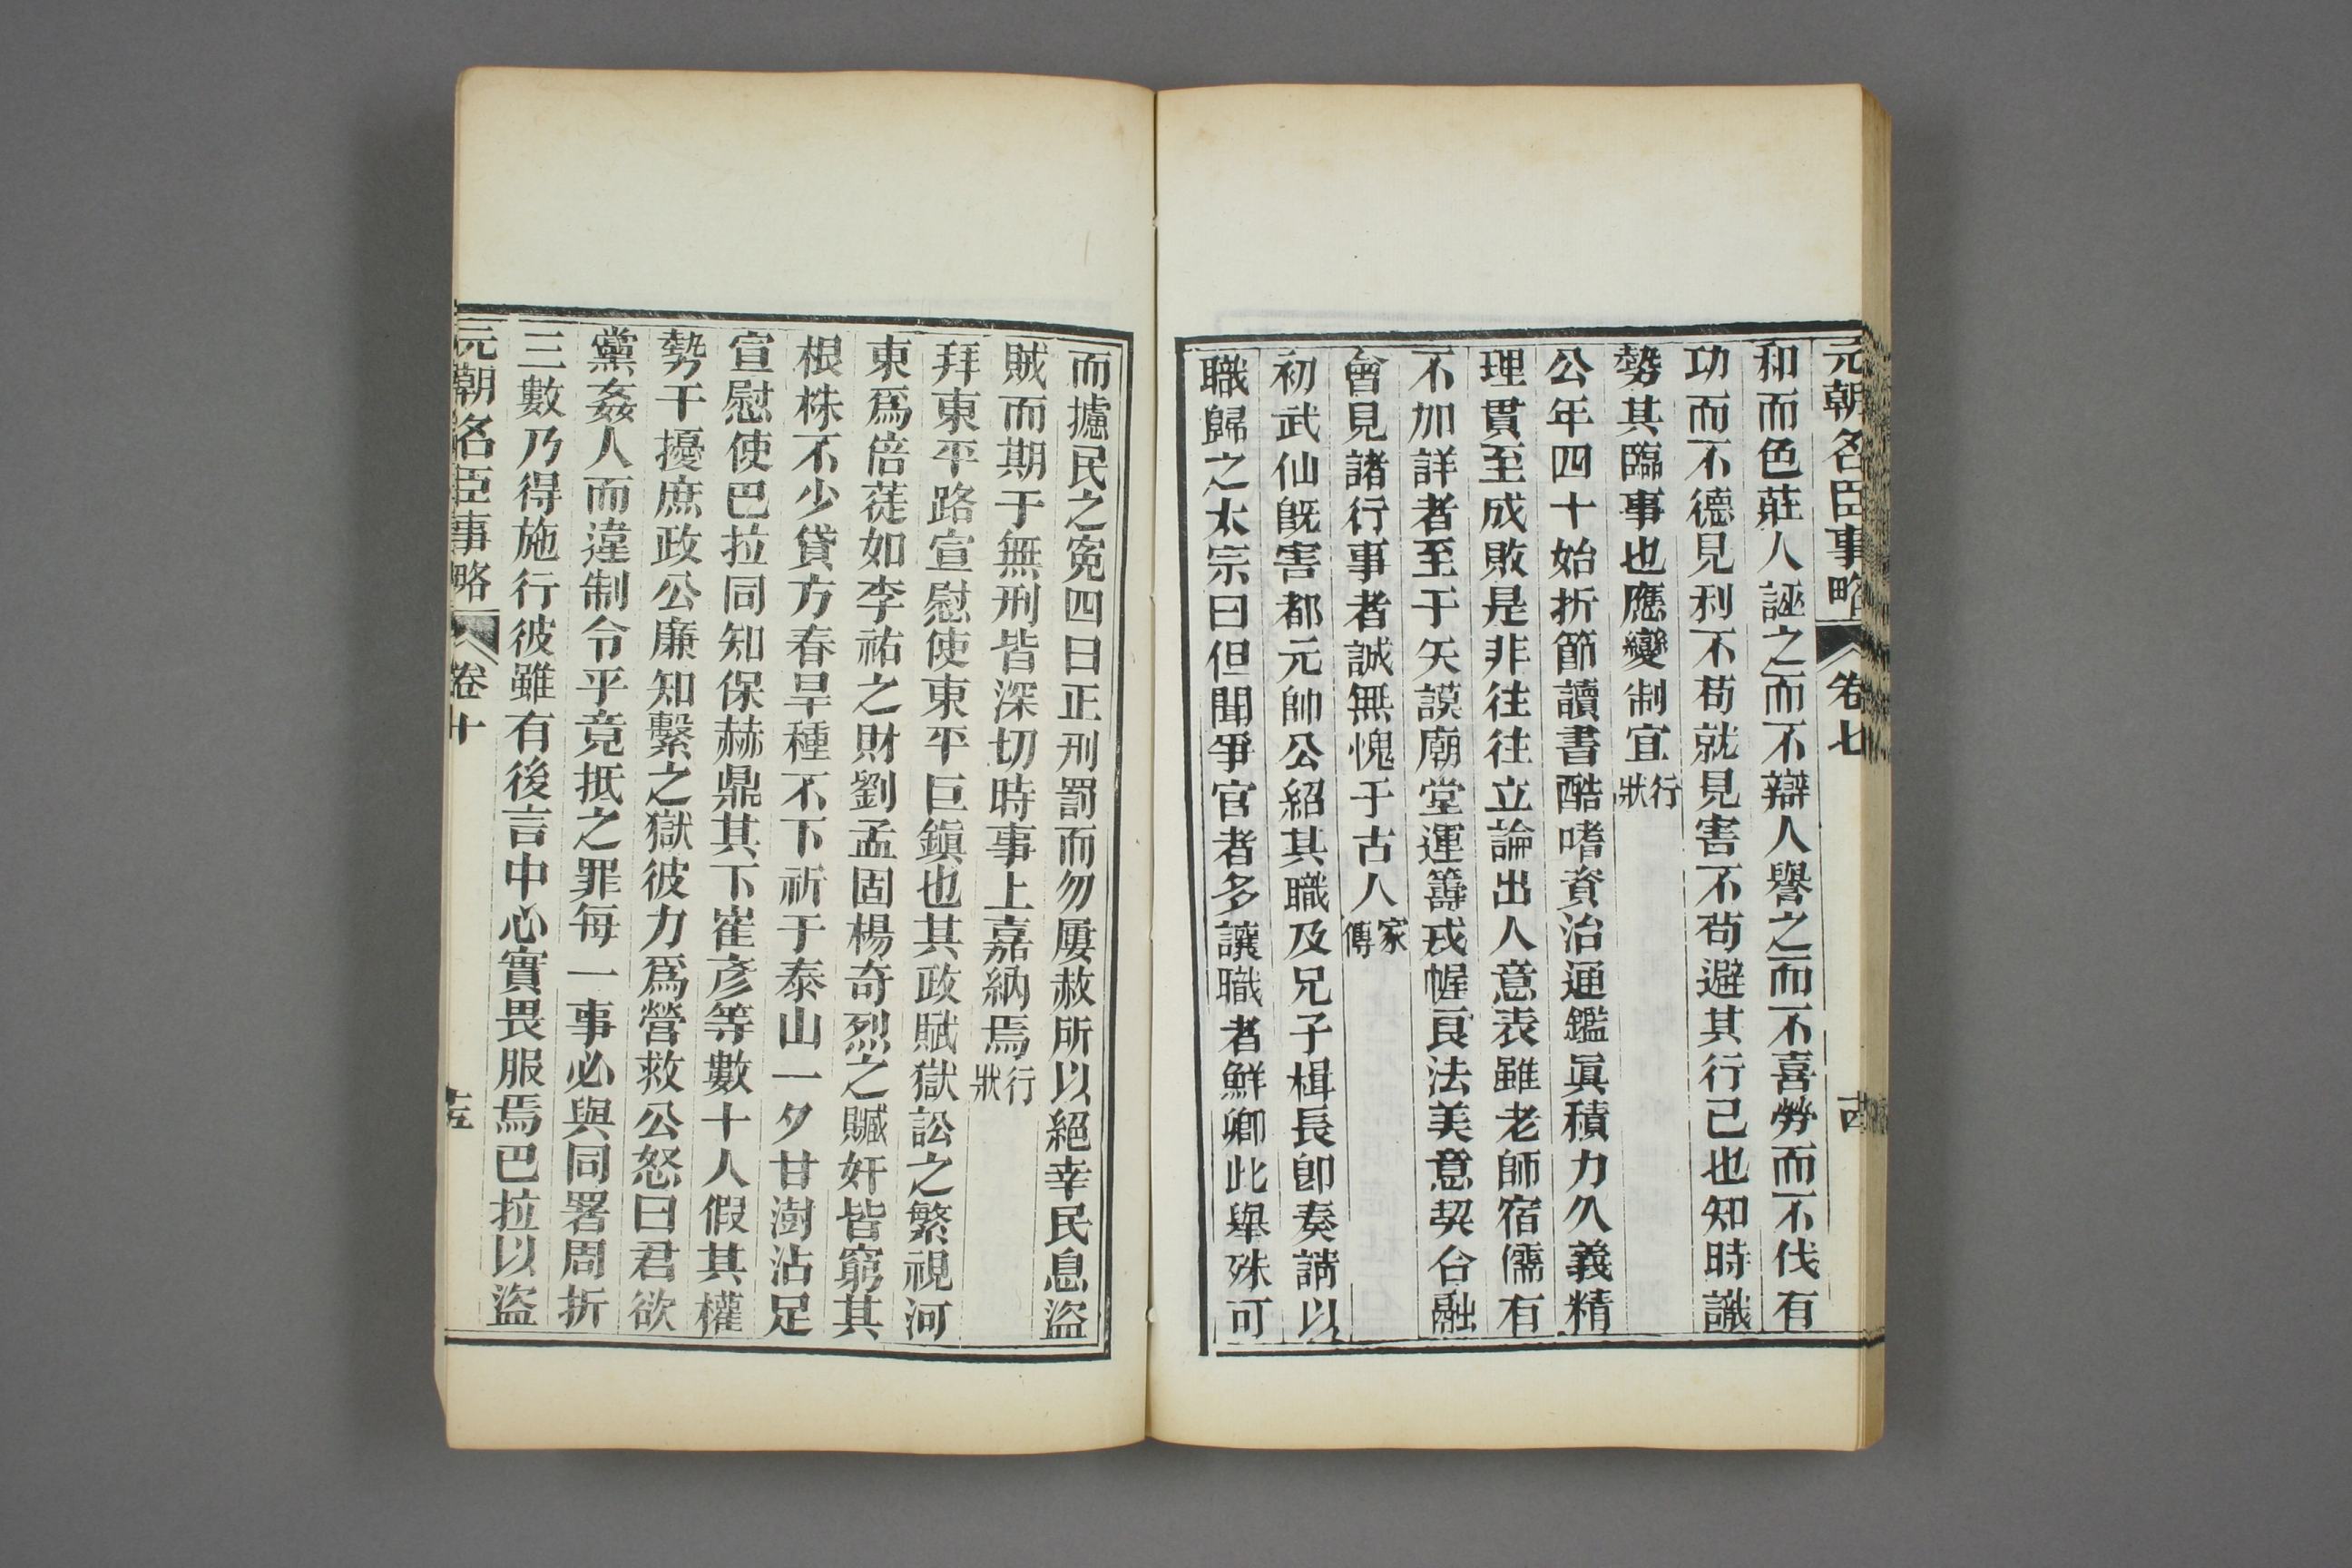 元朝名臣事略 卷七 十四
和而色莊人誣之而不辯人譽之而不喜勞而不伐有
功而不德見利不苟就見害不苟避其行己也知時識
勢其臨事也應變制宜行狀
公年四十始折節讀書酷嗜資治通鑑眞積力久義精
理貫至成敗是非往往立論出人意表雖老師宿儒有
不加詳者至于矢謨廟堂運籌戎幄良法美意契合融
會見諸行事者誠無愧于古人家傳
初武仙旣害都元帥公紹其職及兄子楫長卽奏請以
職歸之太宗曰但聞爭官者多讓職者鮮卿此舉殊可
而攎民之寃四曰正刑罰而勿屢赦所以絕幸民息盜
賊而期于無刑皆深切時事上嘉納焉行狀
拜東平路宣慰使東平巨鎭也其政賦獄訟之繁視河
東爲倍蓰如李祐之財劉孟固楊奇烈之贓奸皆窮其
根株不少貸方春旱種不下祈于泰山一夕甘澍沾足
宣慰使巴拉同知保赫鼎其下崔彥等數十人假其權
勢干擾庶政公廉知繫之獄彼力爲營救公怒曰君欲
黨姦人而違制令乎竟抵之罪每一事必與同署周折
三數乃得施行彼雖有後言中心實畏服焉巴拉以盜
元朝名臣事略 卷十 十五